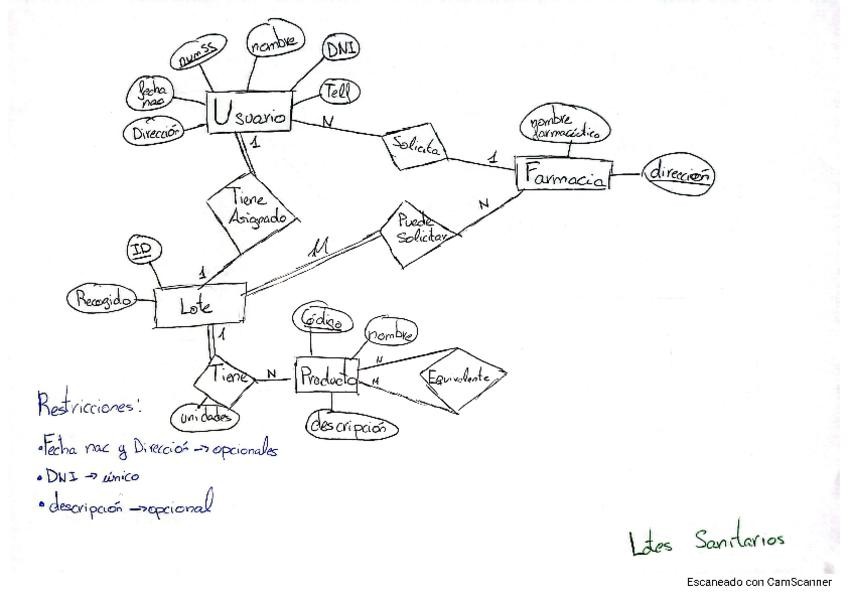 numss
nombre
DNI
fecha
nac
Tell
Dirección
Usuario
N
1
Solicita
1
nombre
farmacéutico
Farmacia
dirección
Tiene
Asignado
Puede
Solicitar
N
M
ID
1
Recogido
Lote
1
Código
nombre
Tiene
N
Producto
N
M
Equivalente
unidades
descripción
Restricciones:
•Fecha nac y Dirección → opcionales
•DNI → único
•descripción → opcional
Lotes Sanitarios
Escaneado con CamScanner